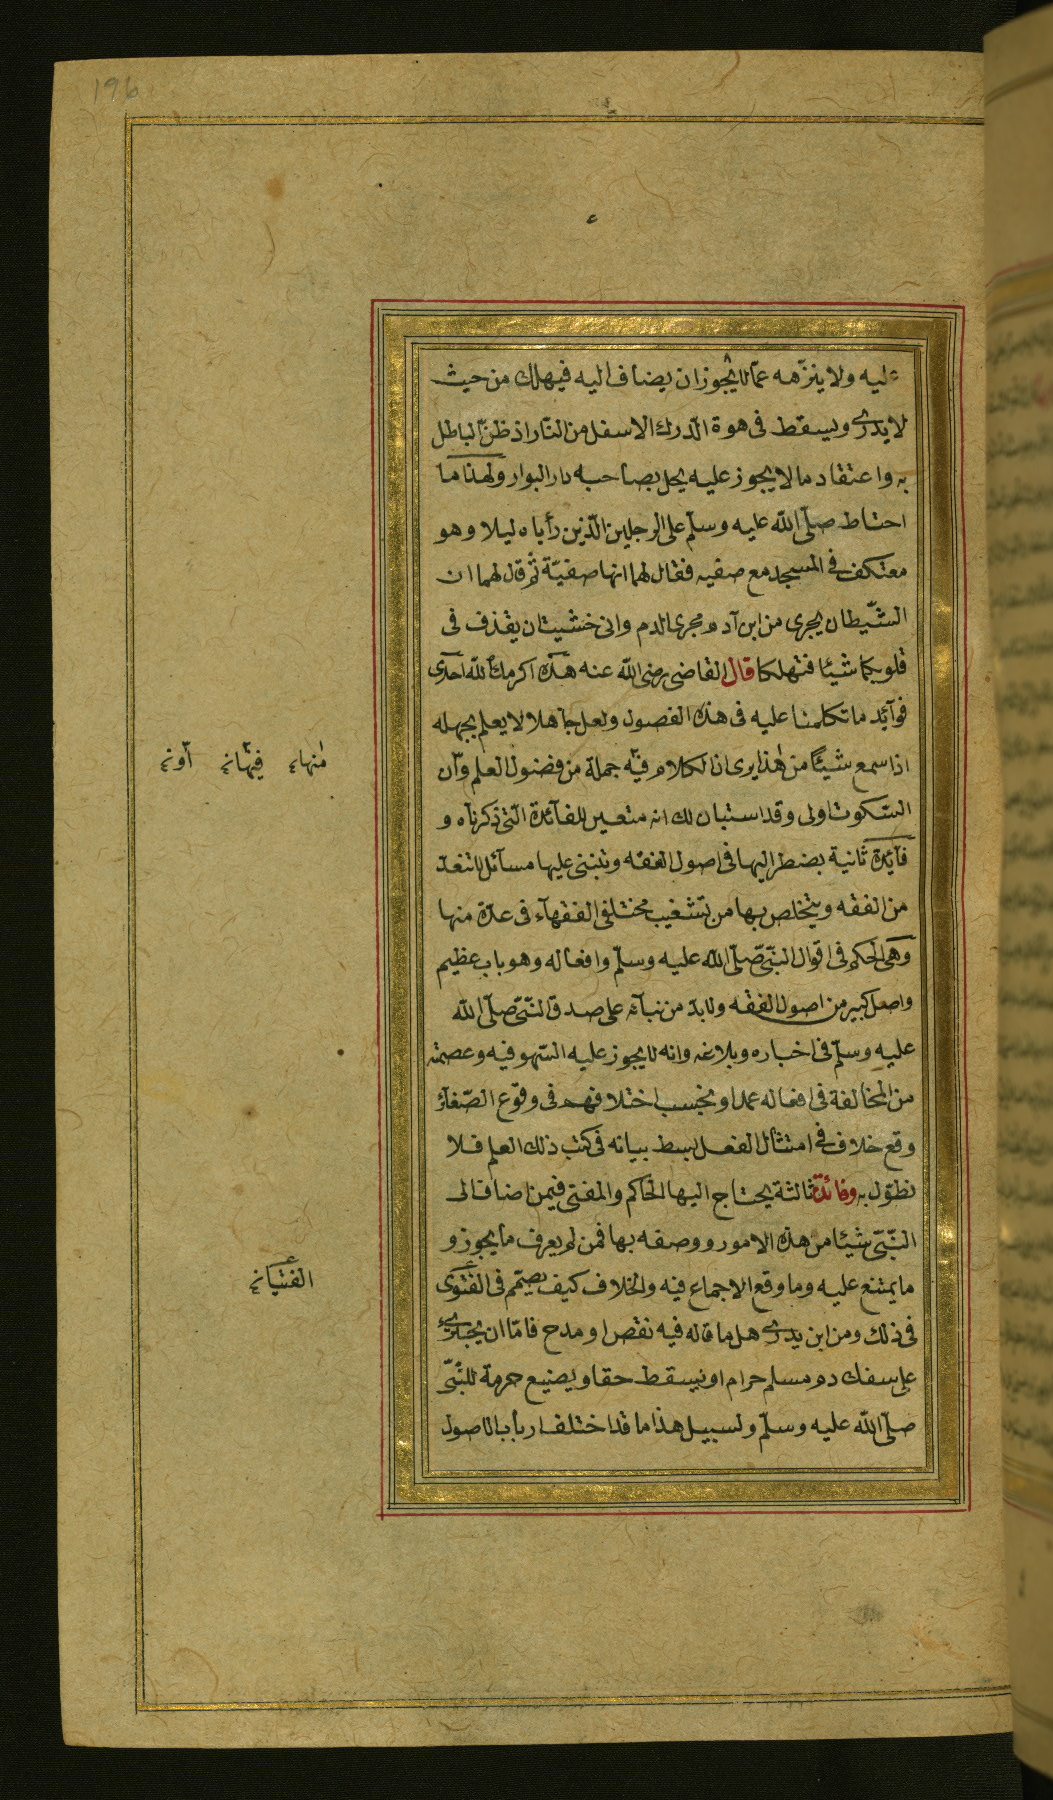 196
عليه ولا ينزهه عمّا لا يجوز ان يضاف اليه فيهلك من حيث
لا يدرى ويسقط فى هوة الدّرك الاسفل من النّار اذ ظنّ الباطل
به واعتقاد ما لا يجوز عليه يحل بصاحبه دار البوار ولهذا ما
احتاط صلّى اللّه عليه وسلّم على الرجلين الّذين رأياه ليلا وهو
معتكف فى المسجد مع صفيه فقال لهما انها صفيّة ثم قال لهما ان
الشّيطان يجرى من ابن آدم مجرى الدم وانى خشيت ان يقذف فى
قلوبكما شيئا فتهلكا قال القاضى رضى اللّه عنه هذه اكرمك اللّه احدى
فوآئد ما تكلمنا عليه فى هذه الفصول ولعل جاهلا لا يعلم بجهله
اذا سمع شيئا من هذا يرى ان الكلام فيه جملة من فضول العلم وأن
السّكوت اولى وقد استبان لك انه متعين للفآئدة الّتى ذكرناه و
فآئدة ثانية يضطر اليها فى اصول الفقه وتبتنى عليها مسآئل لا تنعدّ
من الفقه ويتخلص بها من تشغيب مختلفى الفقهآء فى عدّة منها
وهى الحكم فى اقوال النّبّى صلّى اللّه عليه وسلّم وافعاله وهو باب عظيم
واصل كبير من اصول الفقه ولا بدّ من بنآئه على صدق النّبّى صلّى اللّه
عليه وسلّم فى اخباره وبلاغه وانه لا يجوز عليه السّهو فيه وعصمته
من المخالفة فى افعاله عمدا وبحسب اختلافهم فى وقوع الصّغآئر
وقع خلاف فى امتثال الفعل بسط بيانه فى كتب ذلك العلم فلا
نطوّل به وفائدة ثالثة يحتاج اليها الحاكم والمفتى فيمن اضاف الى
النّبّى شيئا من هذه الامور ووصفه بها فمن لم يعرف ما يجوز و
ما يمتنع عليه وما وقع الاجماع فيه والخلاف كيف يصمّم فى الفتوى
فى ذلك ومن اين يدرى هل ما قاله فيه نقص او مدح فامّا ان يجترى
على سفك دم مسلم حرام او يسقط حقا ويضيع حرمة للنّبّى
صلّى اللّه عليه وسلّم ولسبيل هذا ما قد اختلف ارباب الاصول
منها
فيها
أو
الفتيا